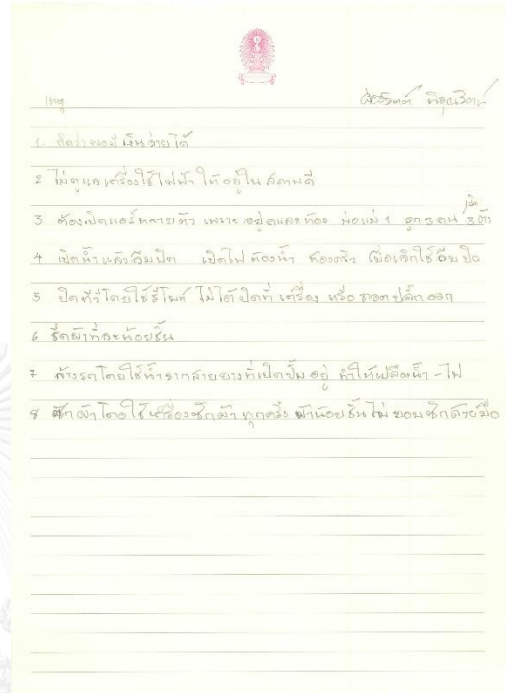 เหตุ
1. คิดว่าพอมีเงินจ่ายได้
2 ไม่ดูแลเครื่องใช้ไฟฟ้าให้อยู่ในสภาพดี
3 ต้องเปิดแอร์หลายตัว เพราะอยู่คนละห้อง พ่อแม่ 1 ลูก 3 คน เปิด 3 ตัว
4 เปิดน้ำแล้วลืมปิด เปิดไฟห้องน้ำ ห้องครัว เมื่อเลิกใช้ลืมปิด
5 ปิดทีวีโดยใช้รีโมท ไม่ได้ปิดที่เครื่อง หรือถอดปลั๊กออก
6 รีดผ้าทีละน้อยชิ้น
7 ล้างรถโดยใช้น้ำจากสายยางที่เปิดปั๊มอยู่ ทำให้เปลืองน้ำ - ไฟ
8 ซักผ้าโดยใช้เครื่องซักผ้าทุกครั้ง ผ้าน้อยชิ้นไม่ยอมซักด้วยมือ